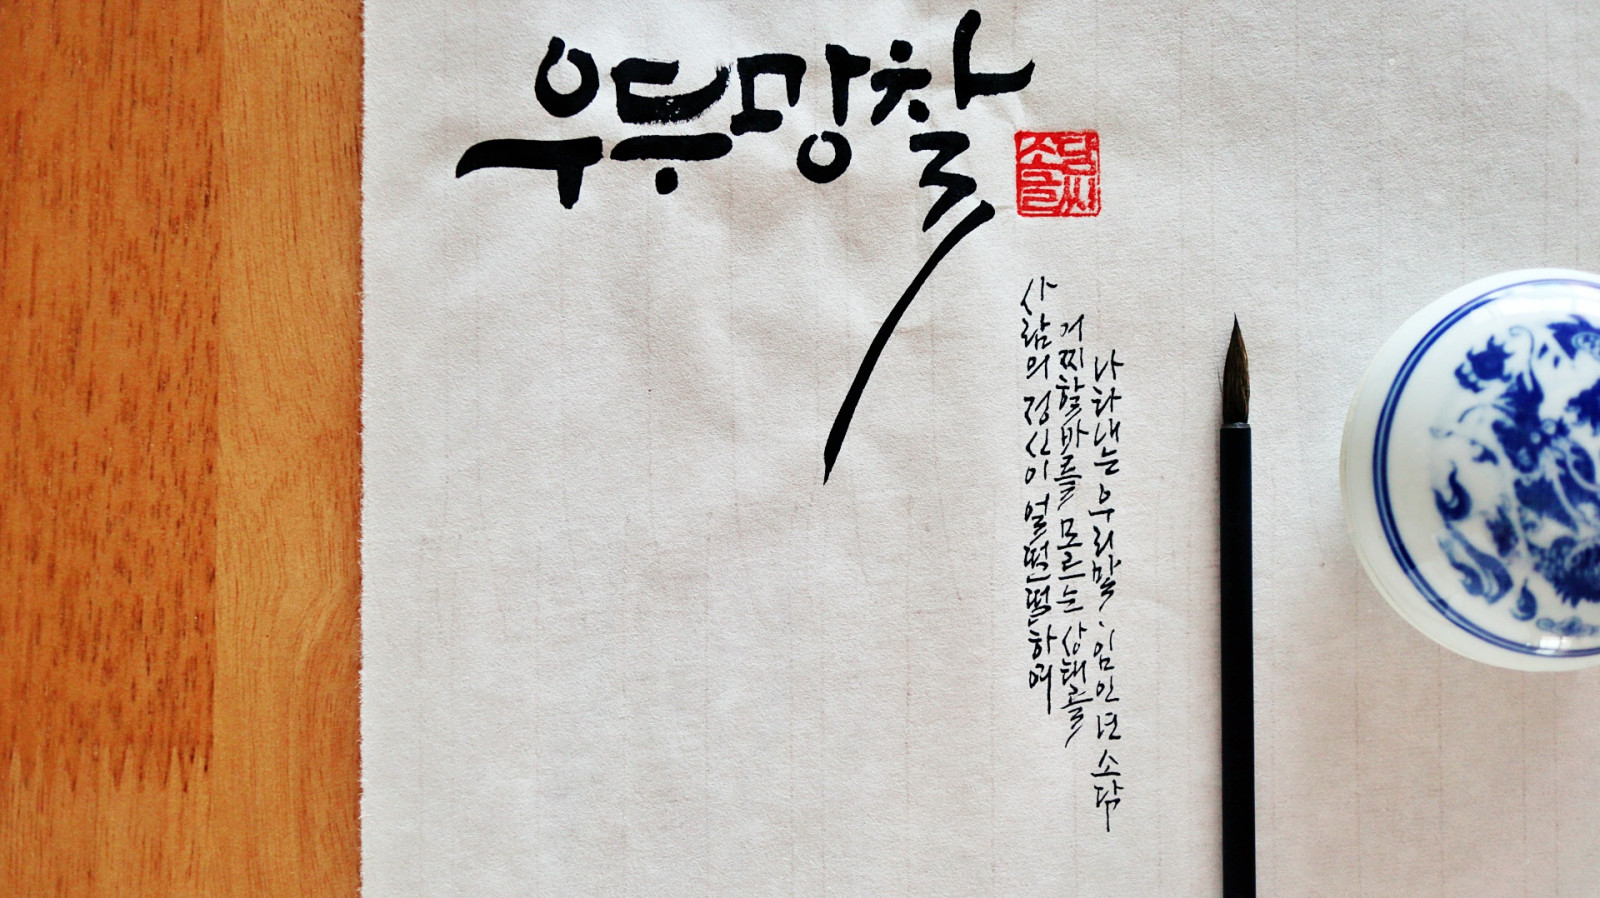 우두망찰
소담
글씨
사람의 정신이 얼떨떨하여
어찌할바를 모르는 상태를
나타내는 우리말, 임인년 소담